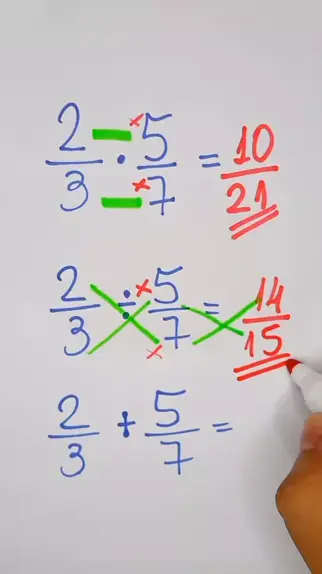 2/3 · 5/7 = 10/21
2/3 ÷ 5/7 = 14/15
2/3 + 5/7 =